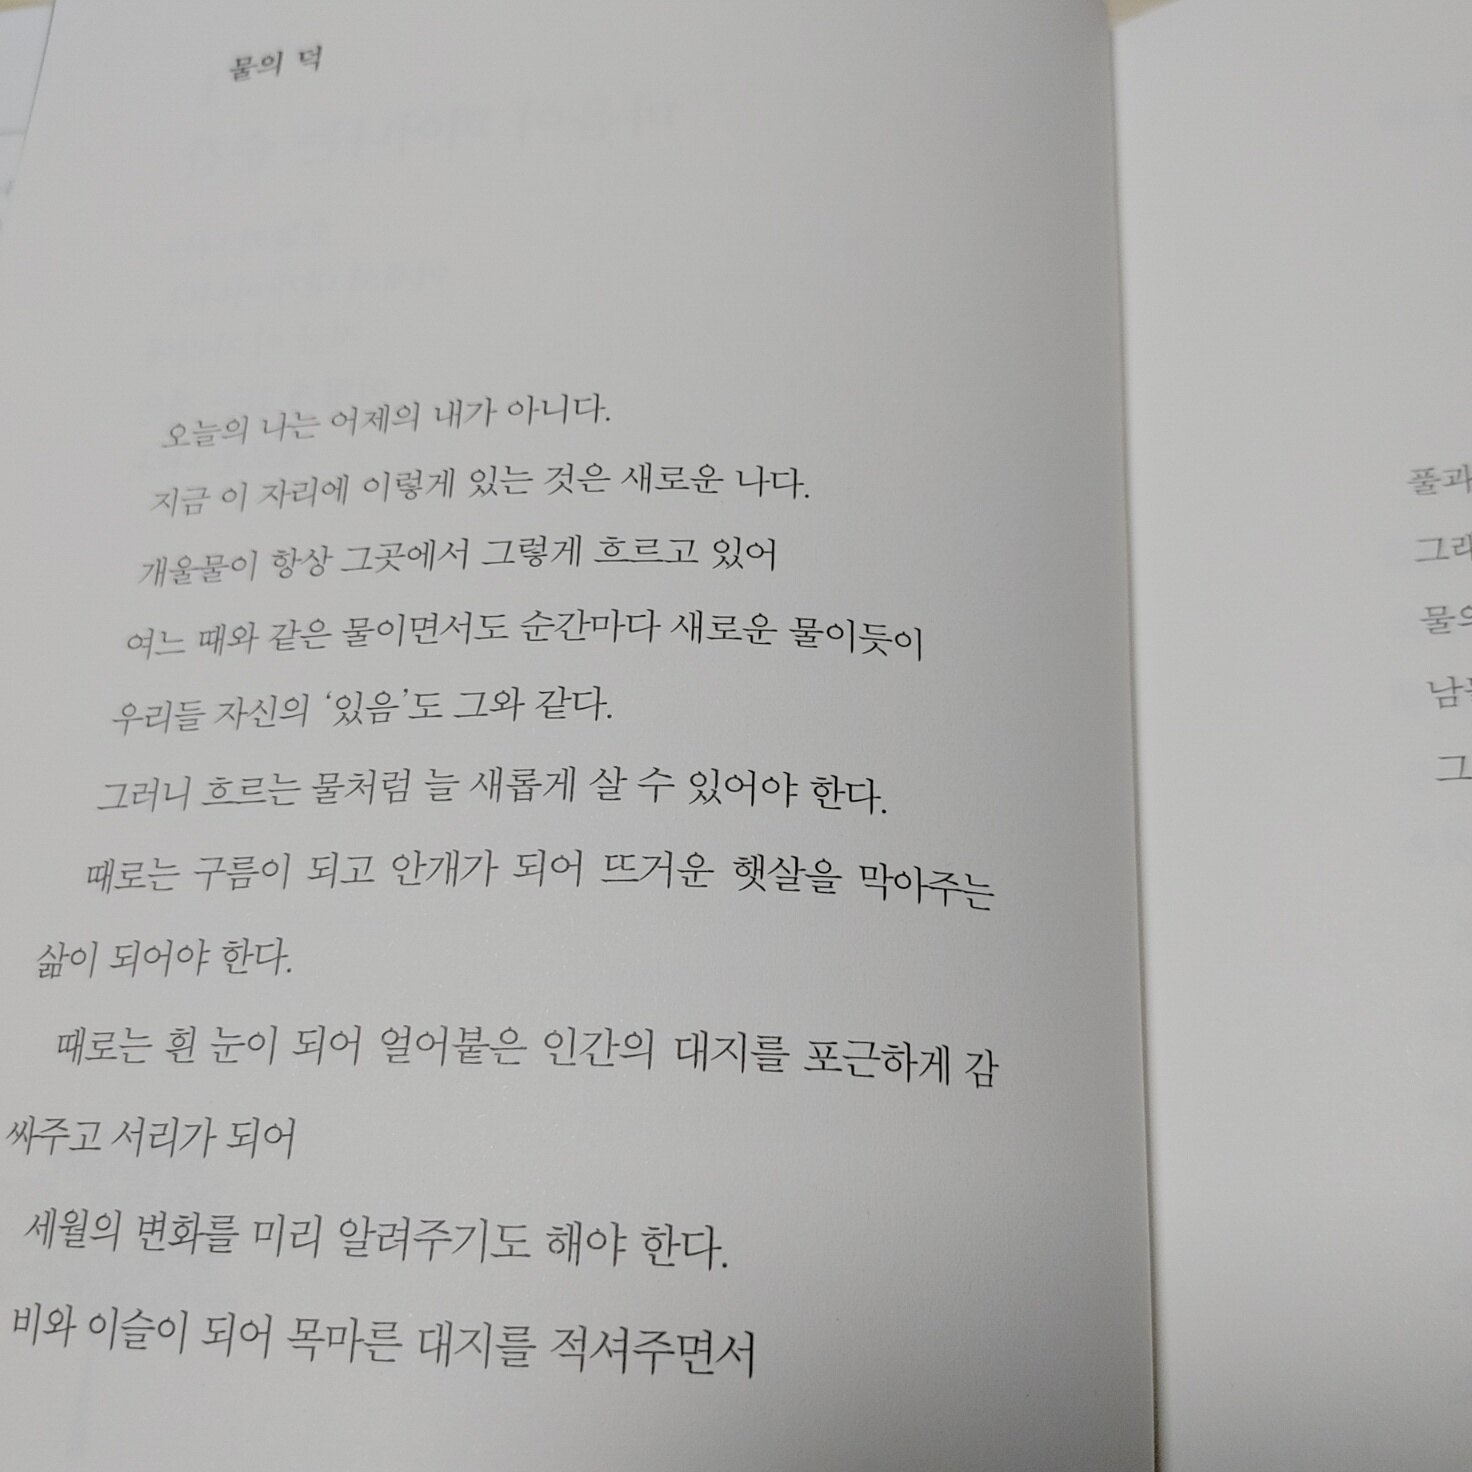 물의 덕
오늘의 나는 어제의 내가 아니다.
지금 이 자리에 이렇게 있는 것은 새로운 나다.
개울물이 항상 그곳에서 그렇게 흐르고 있어
여느 때와 같은 물이면서도 순간마다 새로운 물이듯이
우리들 자신의 ‘있음’도 그와 같다.
그러니 흐르는 물처럼 늘 새롭게 살 수 있어야 한다.
때로는 구름이 되고 안개가 되어 뜨거운 햇살을 막아주는
삶이 되어야 한다.
때로는 흰 눈이 되어 얼어붙은 인간의 대지를 포근하게 감
싸주고 서리가 되어
세월의 변화를 미리 알려주기도 해야 한다.
비와 이슬이 되어 목마른 대지를 적셔주면서
풀과
물의